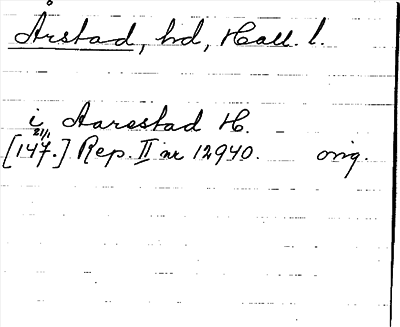 Årstad, hd, Hall. l.
i Aarestad H.
21/1
[147.] Rep. II nr 12940. orig.